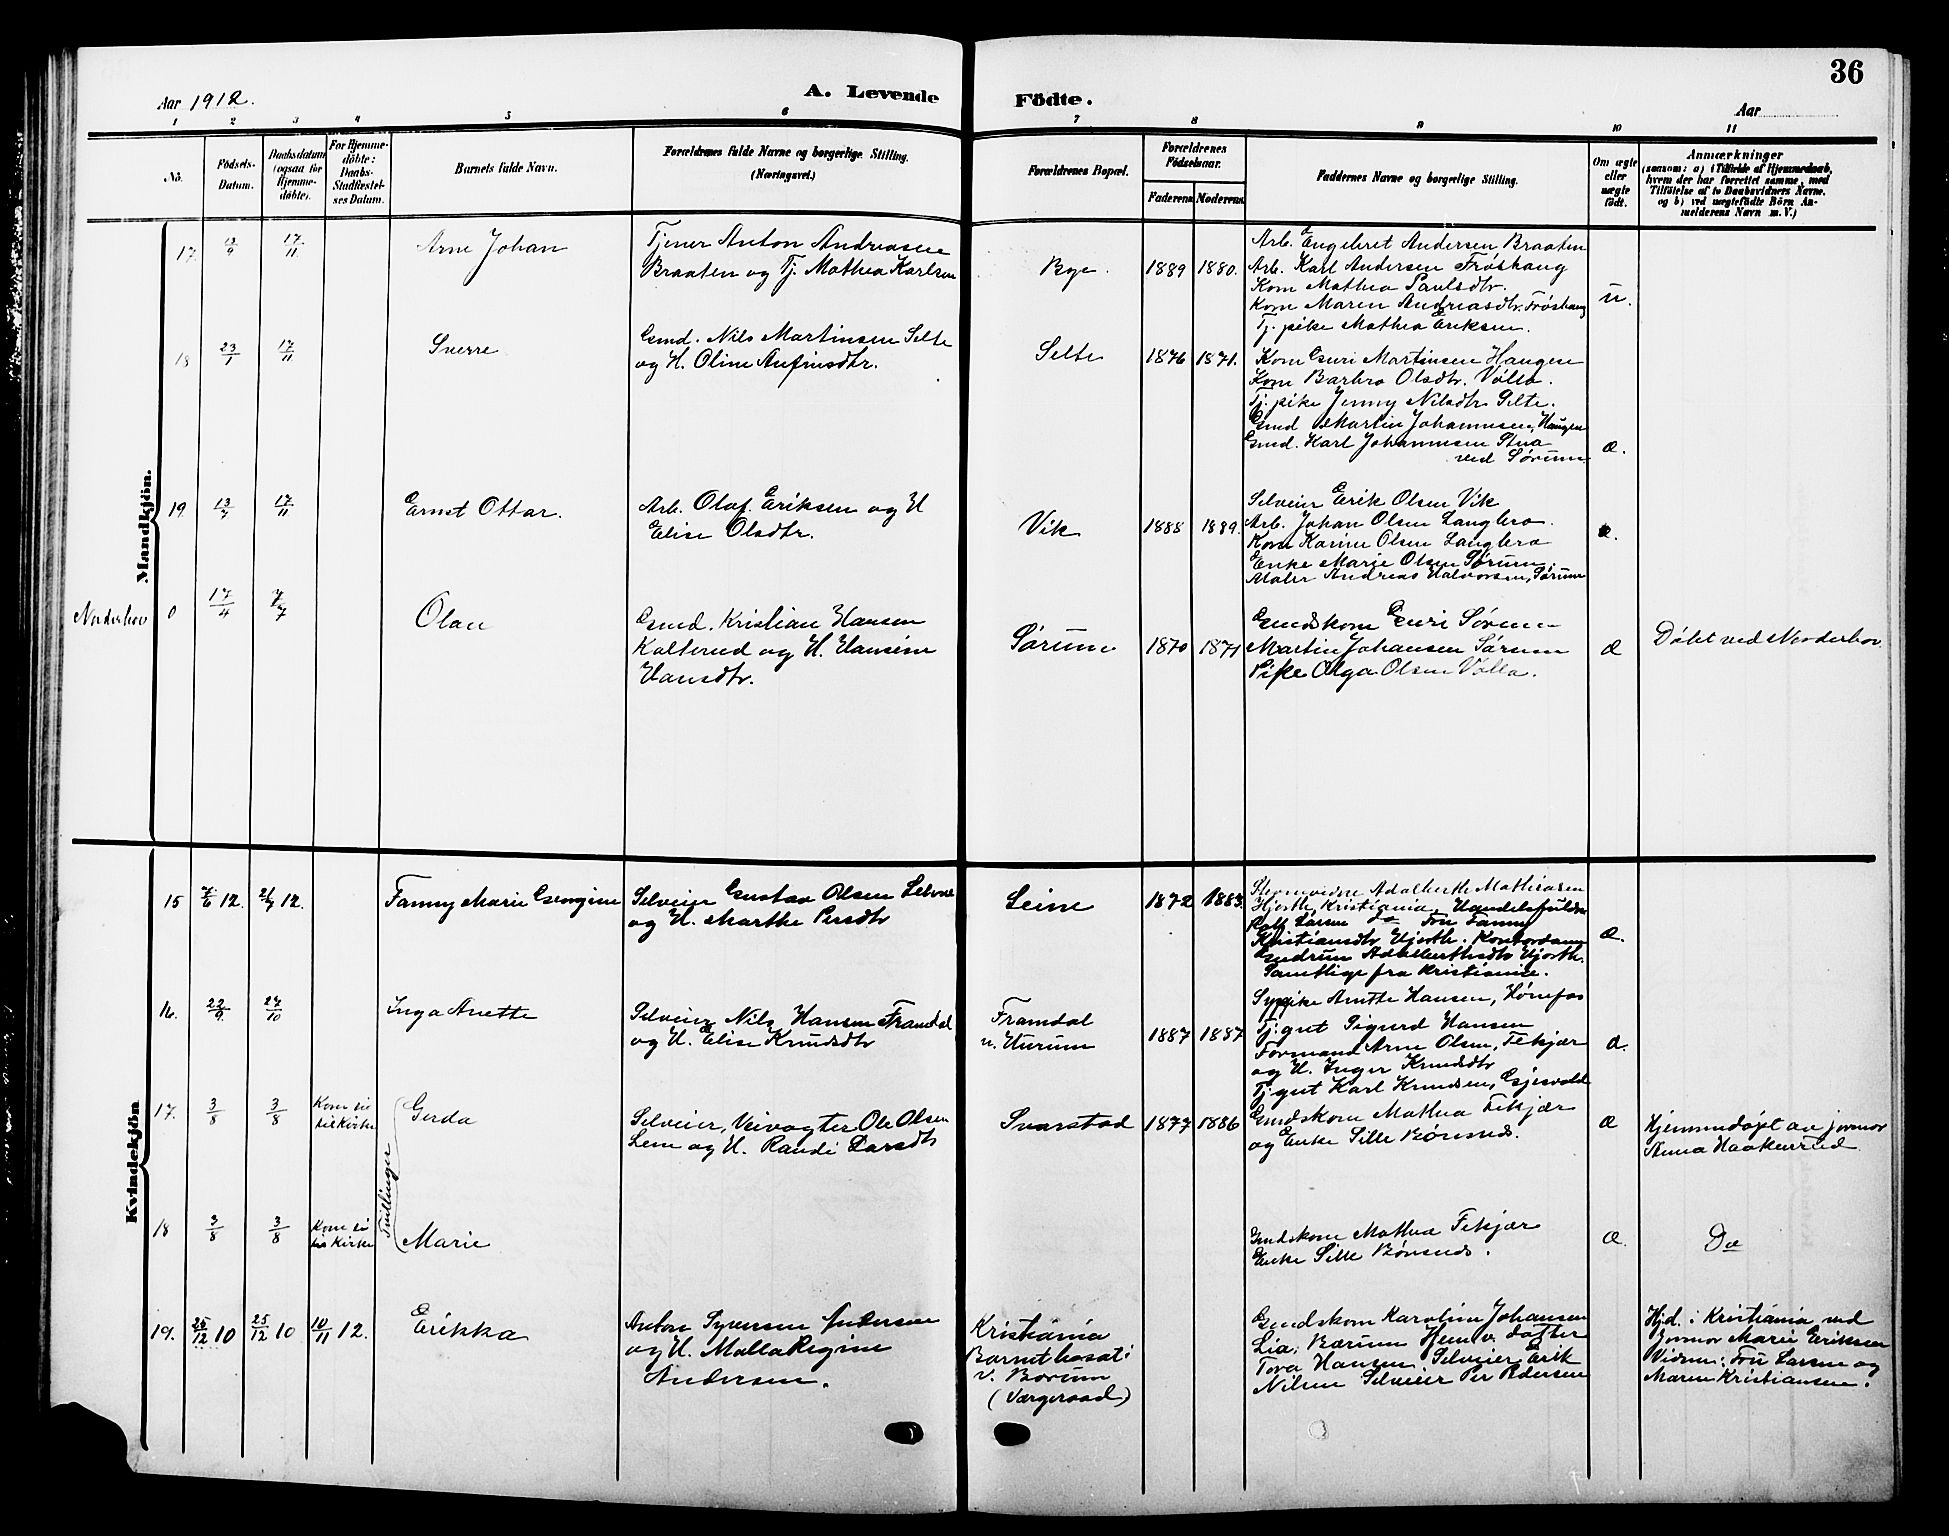 36
Aar 1912.
A. Levende Födte.
Aar
1 2 3 4 5 6 7 8 9 10 11
No.
Födsels-
Datum.
Daabsdatum
(ogsaa for
Hjemme-
døbte).
For Hjemme-
døbte:
Daabs-
Stadfæstel-
ses Datum.
Barnets fulde Navn.
Forældrenes fulde Navne og borgerlige Stilling.
(Næringsvei.)
Forældrenes Bopæl.
Forældrenes
Fødselsaar.
Faderens Moderens
Faddernes Navne og borgerlige Stilling.
Om ægte
eller
uægte
født.
Anmærkninger
(saasom: a) i Tilfælde af Hjemmedaab,
hvem der har forrettet samme, med
Tilføielse af to Daabsvidners Navne,
og b) ved uægtefødte Börn An-
melderens Navn m. V.)
Mandkjön.
17 13/9 17/11 Arne Johan
Tjener Anton Andreasen
Braaten og Tj. Mathea Karlsen
Bye. 1889 1880.
Arb. Engebret Andersen Braaten
Arb. Karl Andersen Frøshaug
Kom Mathea Paulsdtr.
Kom Maren Andreasdtr. Frøshaug
Tj. pike Mathea Eriksen.
u.
18 23/1 17/11 Sverre
Gmd. Nils Martinsen Selte
og H. Oline Anfinsdtr.
Selte 1876 1871.
Kom Guri Martinsen Haugen
Kom Barbro Olsdtr. Vølla.
Tj. pike Jenny Nilsdtr. Selte.
Gmd Martin Johannesen, Haugen
Gmd. Karl Johannesen Stua
ved Sørum
æ.
19 13/7 17/11 Ernst Ottar.
Arb. Olaf Eriksen og H
Elise Olsdtr.
Vik 1888 1889.
Selveier Erik Olsen Vik
Arb. Johan Olsen Langbro.
Kom Karine Olsen Langbro
Enke Marie Olsen Sørum,
Maler Andreas Halvorsen, Sørum
æ.
Norderhov 0 17/4 7/7 Olav
Gmd. Kristian Hansen
Kolterud og H. Hansine
Hansdtr.
Sørum 1870 1871
Gmdskom Guri Sørum
Martin Johansen Sørum
Pike Olga Olsen Vølla.
æ
Døbt ved Norderhov.
Kvindekjön
15 7/6 12. 21/7 12. Fanny Marie Georgine
Selveier Gustav Olsen
og H. Marthe Persdtr
Leine 1872 1883.
Adalberth Mathiasen
Hjorth, Kristiania.
Rolf Larsen do Fru Fanny
Kristiansdtr Hjorth. Kontordame
Gudrun Adalberthsdtr Hjorth.
Samtlige fra Kristiania.
æ.
16. 22/9 27/10 Inga Anette
Selveier Nils Hansen Framdal
og H. Elise Knudsdtr
Framdal
n. Hurum
1887 1887
Sypike Anette Hansen, Hønefos
Tj.gut Sigurd Hansen
Formand Arne Olsen, Fekjær
og H. Inger Knudsdtr
Tj.gut Karl Knudsen, Gjesvold
æ.
Tvillinger
17. 3/8 3/8 Kom ei
til Kirke
Gerda
Selveier, Veivogter Ole Olsen
Lem og H. Randi Larsdtr
Svarstad 1877 1886
Gmdskom Mathea Fekjær
og Enke Sille Børsnes.
æ
Hjemmedøpt av jormor
Anna Haakenstad
18 3/8 3/8 Kom ei
til Kirke
Marie
Gmdskone Mathea Fekjær
Enke Sille Børsnes.
æ.
Do
19. 25/12 10 25/12 10 10/11 12. Erikka
Anton Syversen Andersen
og H. Malla Regine
Andersen.
Kristiania
Barnet bosat i
v. Borum
(Værgeraad)
Gmdskom Karoline Johansen
Lia, Bærum Hjem.v. datter
Tora Hansen, Selveier Erik
Nilsen Selveier Per Pedersen
Hjd. i Kristiania ved
Jormor Marie Eriksen
Vidner: Fru Larsen og
Maren Kristiansen.